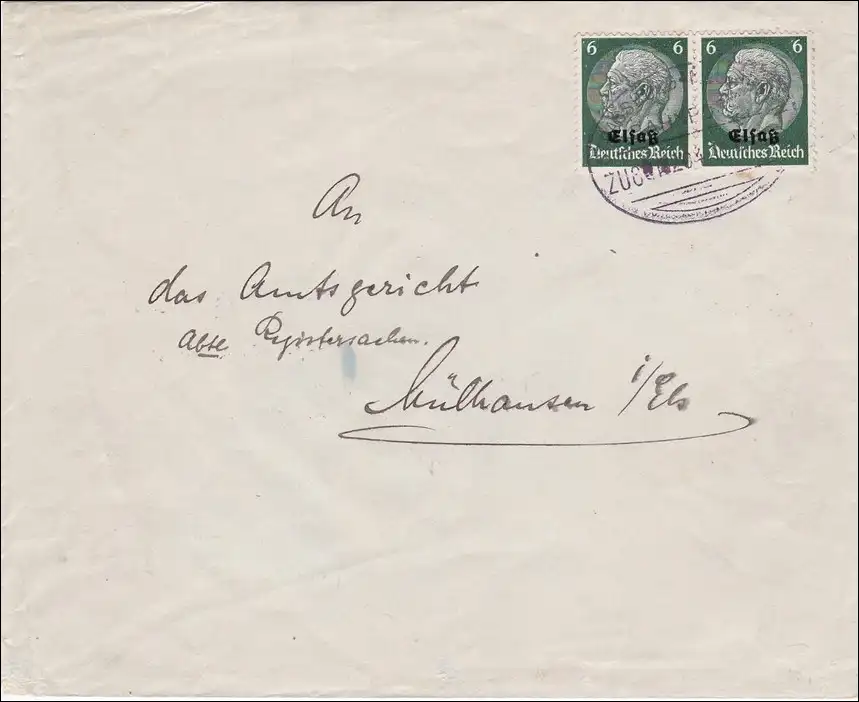 6 6 6 6
Elsaß Elsaß
Deutsches Reich Deutsches Reich
ZUG
An
das Amtsgericht
Abte Registersachen.
Mülhausen i/Els